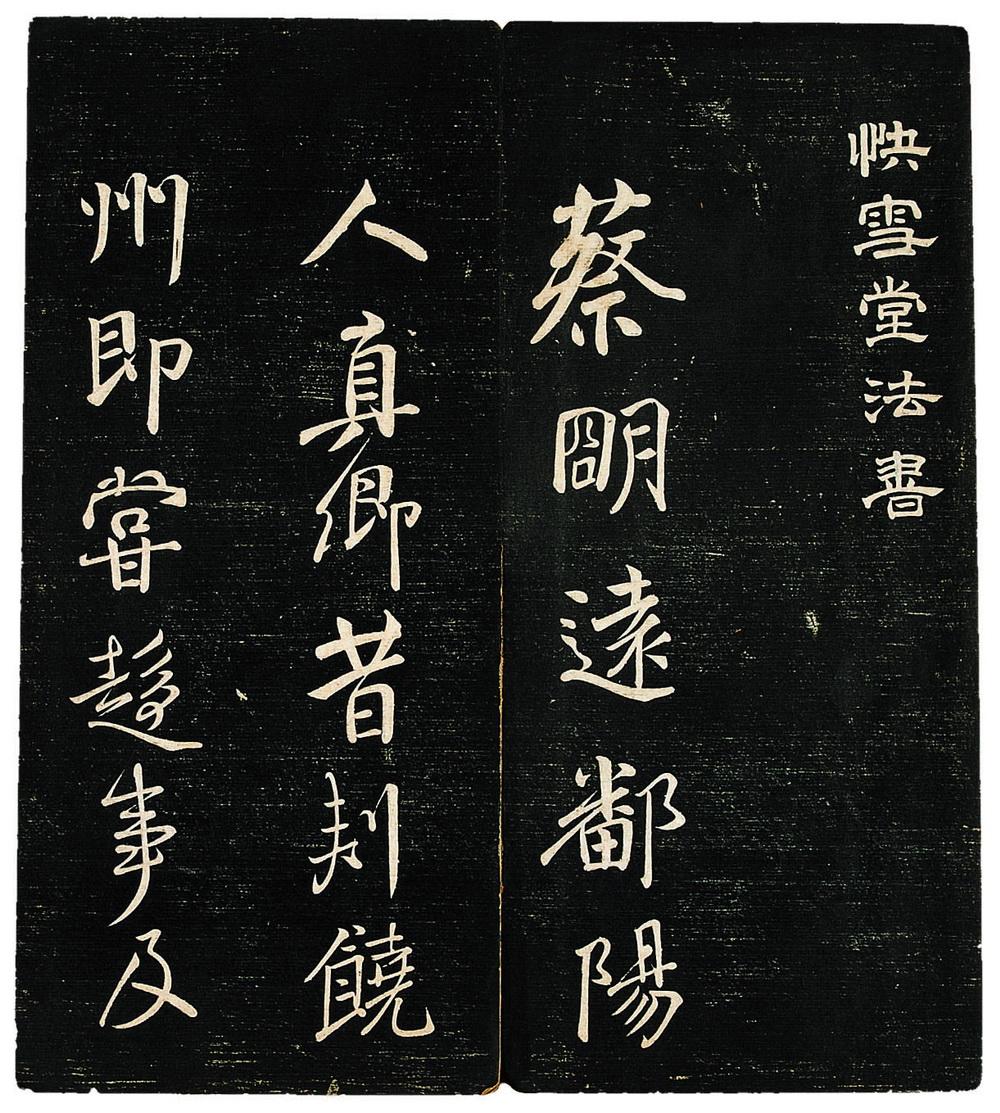 快雪堂法書
蔡明遠鄱陽
人真卿昔刺饒
州即嘗趨事及